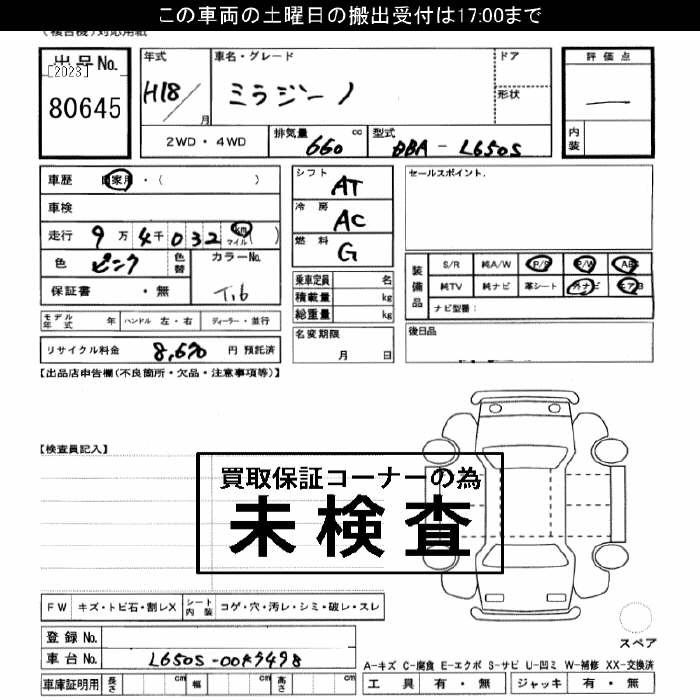 この車両の土曜日の搬出受付は17:00まで
(複合機)対応用紙
出品No.
[2023]
80645
年式
H18 / 月
車名・グレード
ミラジーノ
ドア
形状
評価点
—
内装
2WD・4WD
排気量 cc
660
型式
DBA - L650S
車歴 自家用・( )
車検
走行 9万4千032 km マイル ( )
色 ピンク
色替
カラーNo.
T16
保証書 ・無
モデル年式 年 ハンドル 左・右 ディーラー・並行
リサイクル料金 8,670 円 預託済
シフト AT
冷房 AC
燃料 G
乗車定員 名
積載量 kg
総重量 kg
名変期限
月 日
セールスポイント.
装備品
S/R 純A/W P/S P/W ABS
純TV 純ナビ 革シート 外ナビ エアB
ナビ型番:
後日品
【出品店申告欄(不良箇所・欠品・注意事項等)】
【検査員記入】
買取保証コーナーの為
未検査
FW キズ・トビ石・割レX シート内装 コゲ・穴・汚レ・シミ・破レ・スレ
登録No.
車台No. L650S-
車庫証明用 長さ cm 幅 cm 高さ cm
スペア
A-キズ C-腐食 E-エクボ S-サビ U-凹ミ W-補修 XX-交換済
工具 有・無 ジャッキ 有・無